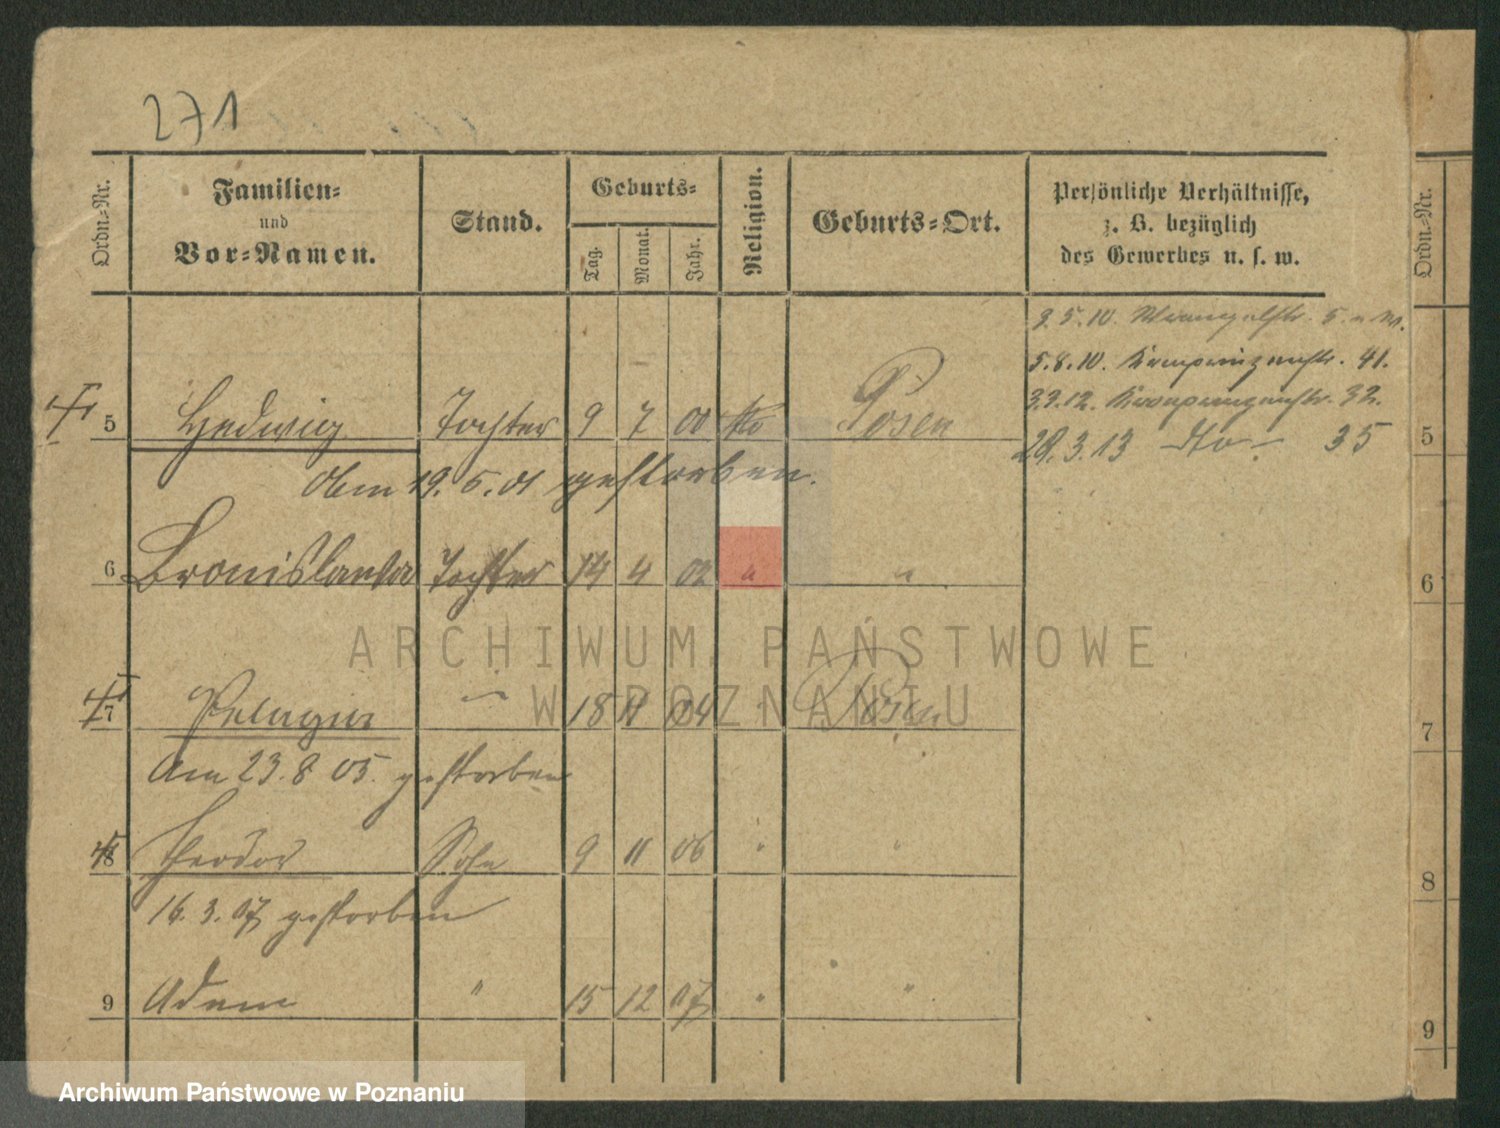 271
Ordn.-Nr.
Familien-
und
Vor-Namen.
Stand.
Geburts-
Tag.
Monat.
Jahr.
Religion.
Geburts-Ort.
Persönliche Verhältnisse,
z. B. bezüglich
des Gewerbes u. s. w.
Ordn.-Nr.
5.8.10. 41.
32.
5 Hedwig Tochter 9 7 00 Posen
29.3.13 dto 35
5
am 19. 5. 01 gestorben.
6 Bronislawa Tochter 14 4 02 " "
6
ARCHIWUM PAŃSTWOWE
W POZNANIU
7 Pelagia " 18 11 04 " Posen
7
Am 23. 8 05. gestorben
8 Theodor Sohn 9 11 06 " "
8
16. 3. 07 gestorben
9 Adam " 15 12 07 " "
9
Archiwum Państwowe w Poznaniu